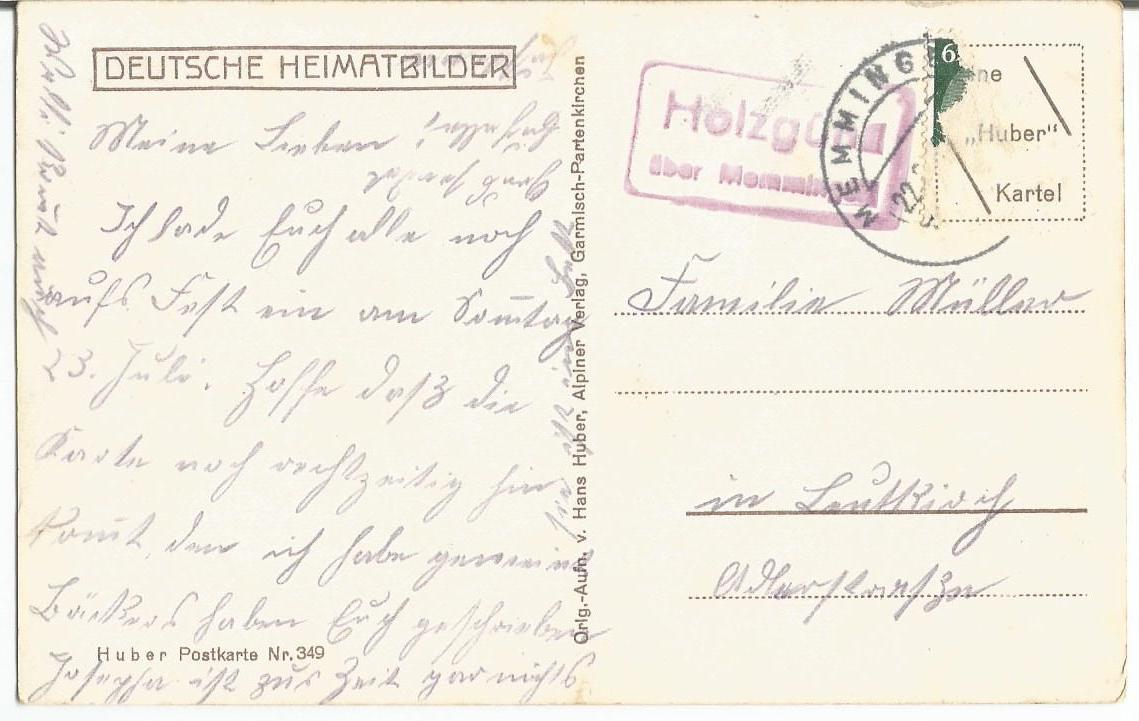 DEUTSCHE HEIMATBILDER
Meine Lieben
Ich lade Euch alle noch
aufs Fest ein am Soñtag
23. Juli. Hoffe daß die
Karte noch rechtzeitig hin
komt, den ich habe gemeint
Bäckers haben Euch geschrieben
Josepha ist zur Zeit gar nichts
Huber Postkarte Nr. 349
Orig.-Aufn. v. Hans Huber, Alpiner Verlag, Garmisch-Partenkirchen
Holzgü
über Memmin
MEMMING
22
6
ne
„Huber"
Kartel
Familie Müller
in Leutkirch
Adlerstraße